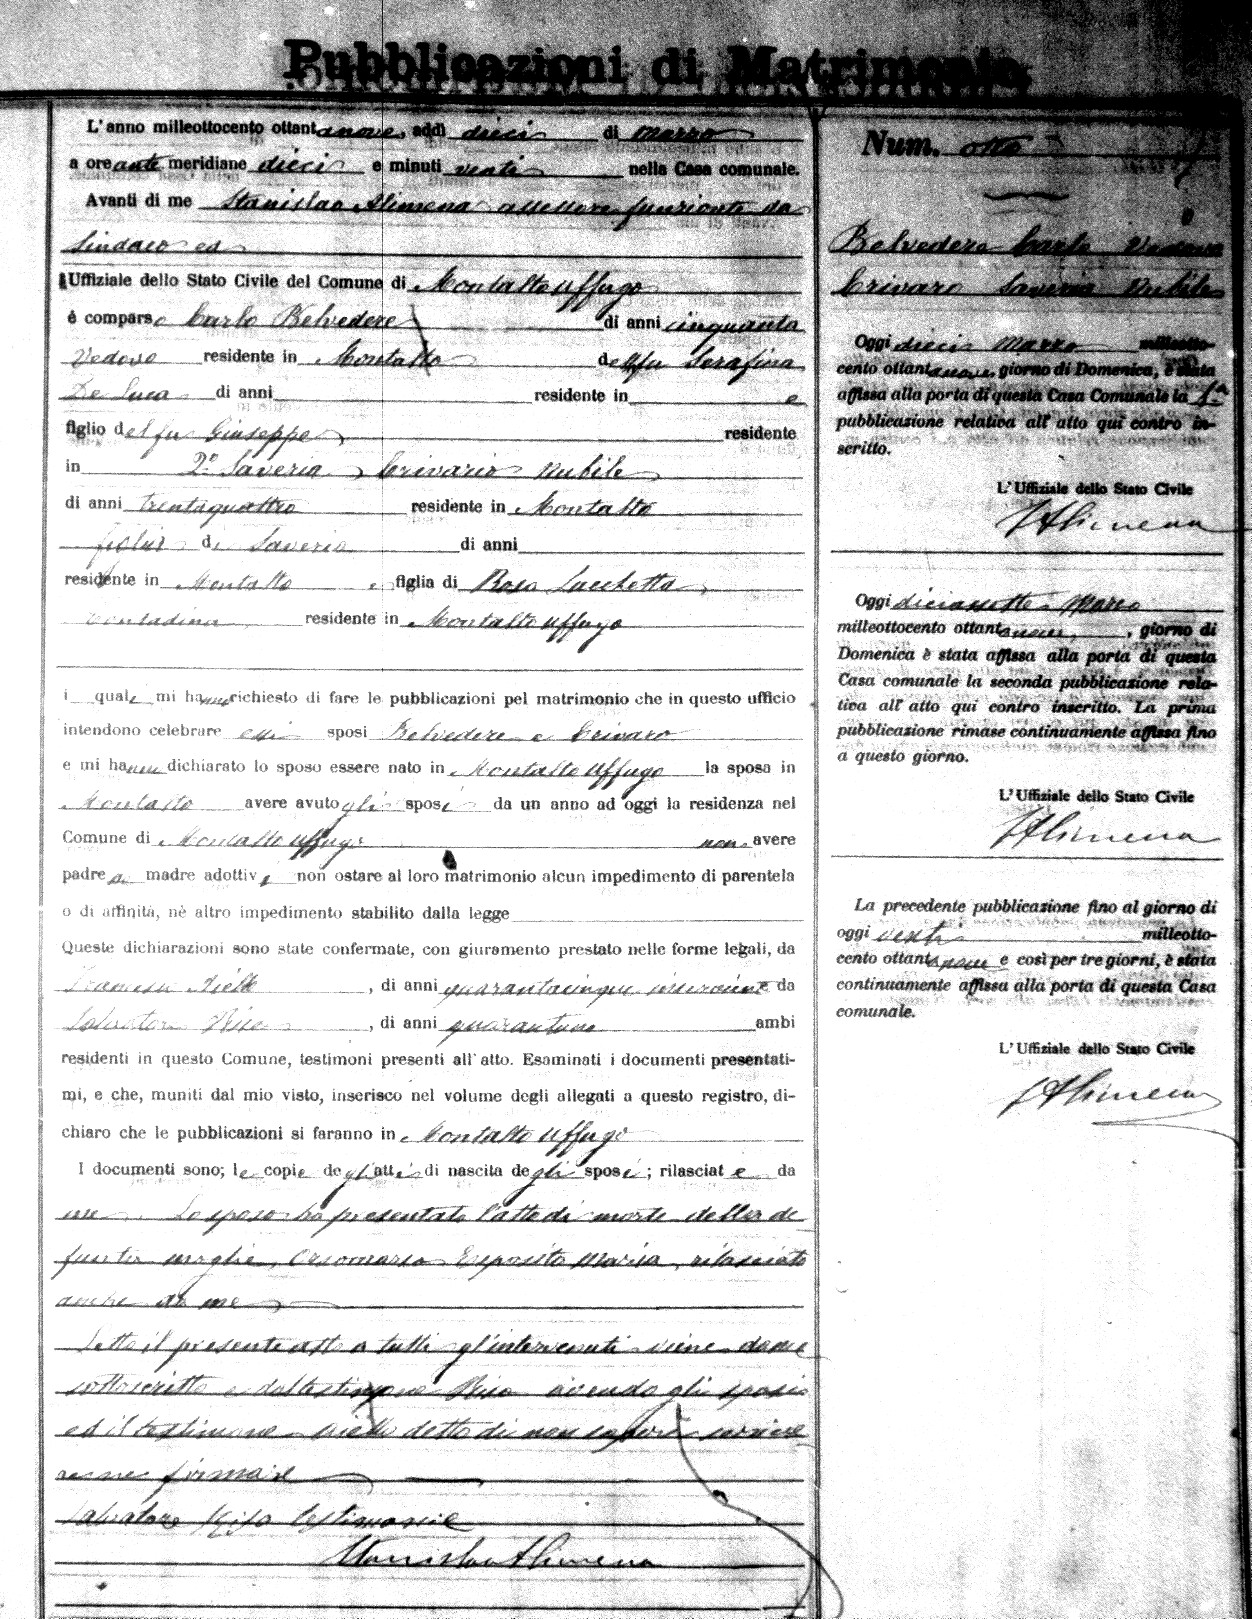 Pubblicazioni di Matrimonio
L'anno milleottocento ottantanove, addì dieci di Marzo
a ore ante meridiane dieci e minuti venti nella Casa comunale.
Avanti di me Stanislao Alimena assessore funzionante da
Sindaco ed
Uffiziale dello Stato Civile del Comune di Montalto Uffugo
è comparso Carlo Belvedere di anni cinquanta
Vedovo residente in Montalto della fu Serafina
De Luca di anni residente in e
figlio del fu Giuseppe residente
in 2º Saveria Crivaro nubile
di anni trentaquattro residente in Montalto
figlia di Saverio di anni
residente in Montalto e figlia di Rosa Lacchetta
Contadina residente in Montalto Uffugo
i quali mi hanno richiesto di fare le pubblicazioni pel matrimonio che in questo ufficio
intendono celebrare essi sposi Belvedere e Crivaro
e mi hanno dichiarato lo sposo essere nato in Montalto Uffugo la sposa in
Montalto avere avuto gli sposi da un anno ad oggi la residenza nel
Comune di Montalto Uffugo non avere
padre o madre adottivi, non ostare al loro matrimonio alcun impedimento di parentela
o di affinità, nè altro impedimento stabilito dalla legge
Queste dichiarazioni sono state confermate, con giuramento prestato nelle forme legali, da
Aiello, di anni quarantacinque e da
Salvatore, di anni quarantuno ambi
residenti in questo Comune, testimoni presenti all'atto. Esaminati i documenti presentati-
mi, e che, muniti dal mio visto, inserisco nel volume degli allegati a questo registro, di-
chiaro che le pubblicazioni si faranno in Montalto Uffugo
I documenti sono; le copie degli atti di nascita degli sposi; rilasciate da
me. Lo sposo ha presentato l'atto di morte della de
funta moglie, Esposito Maria, rilasciato
anche da me
Letto il presente atto a tutti gl'intervenuti viene da me
sottoscritto e dal testimone avendo gli sposi
ed il testimone Aiello detto di non sapere
firmare
Salvatore testimone
Stanislao Alimena
Num. otto
Belvedere Carlo Vedovo
Crivaro Saveria Nubile
Oggi dieci Marzo milleotto-
cento ottantanove, giorno di Domenica, è stata
affissa alla porta di questa Casa Comunale la 1ª
pubblicazione relativa all'atto qui contro in-
scritto.
L'Uffiziale dello Stato Civile
S Alimena
Oggi diciassette Marzo
milleottocento ottantanove, giorno di
Domenica è stata affissa alla porta di questa
Casa comunale la seconda pubblicazione rela-
tiva all'atto qui contro inscritto. La prima
pubblicazione rimase continuamente affissa fino
a questo giorno.
L'Uffiziale dello Stato Civile
S Alimena
La precedente pubblicazione fino al giorno di
oggi venti milleotto-
cento ottantanove e così per tre giorni, è stata
continuamente affissa alla porta di questa Casa
comunale.
L'Uffiziale dello Stato Civile
S Alimena